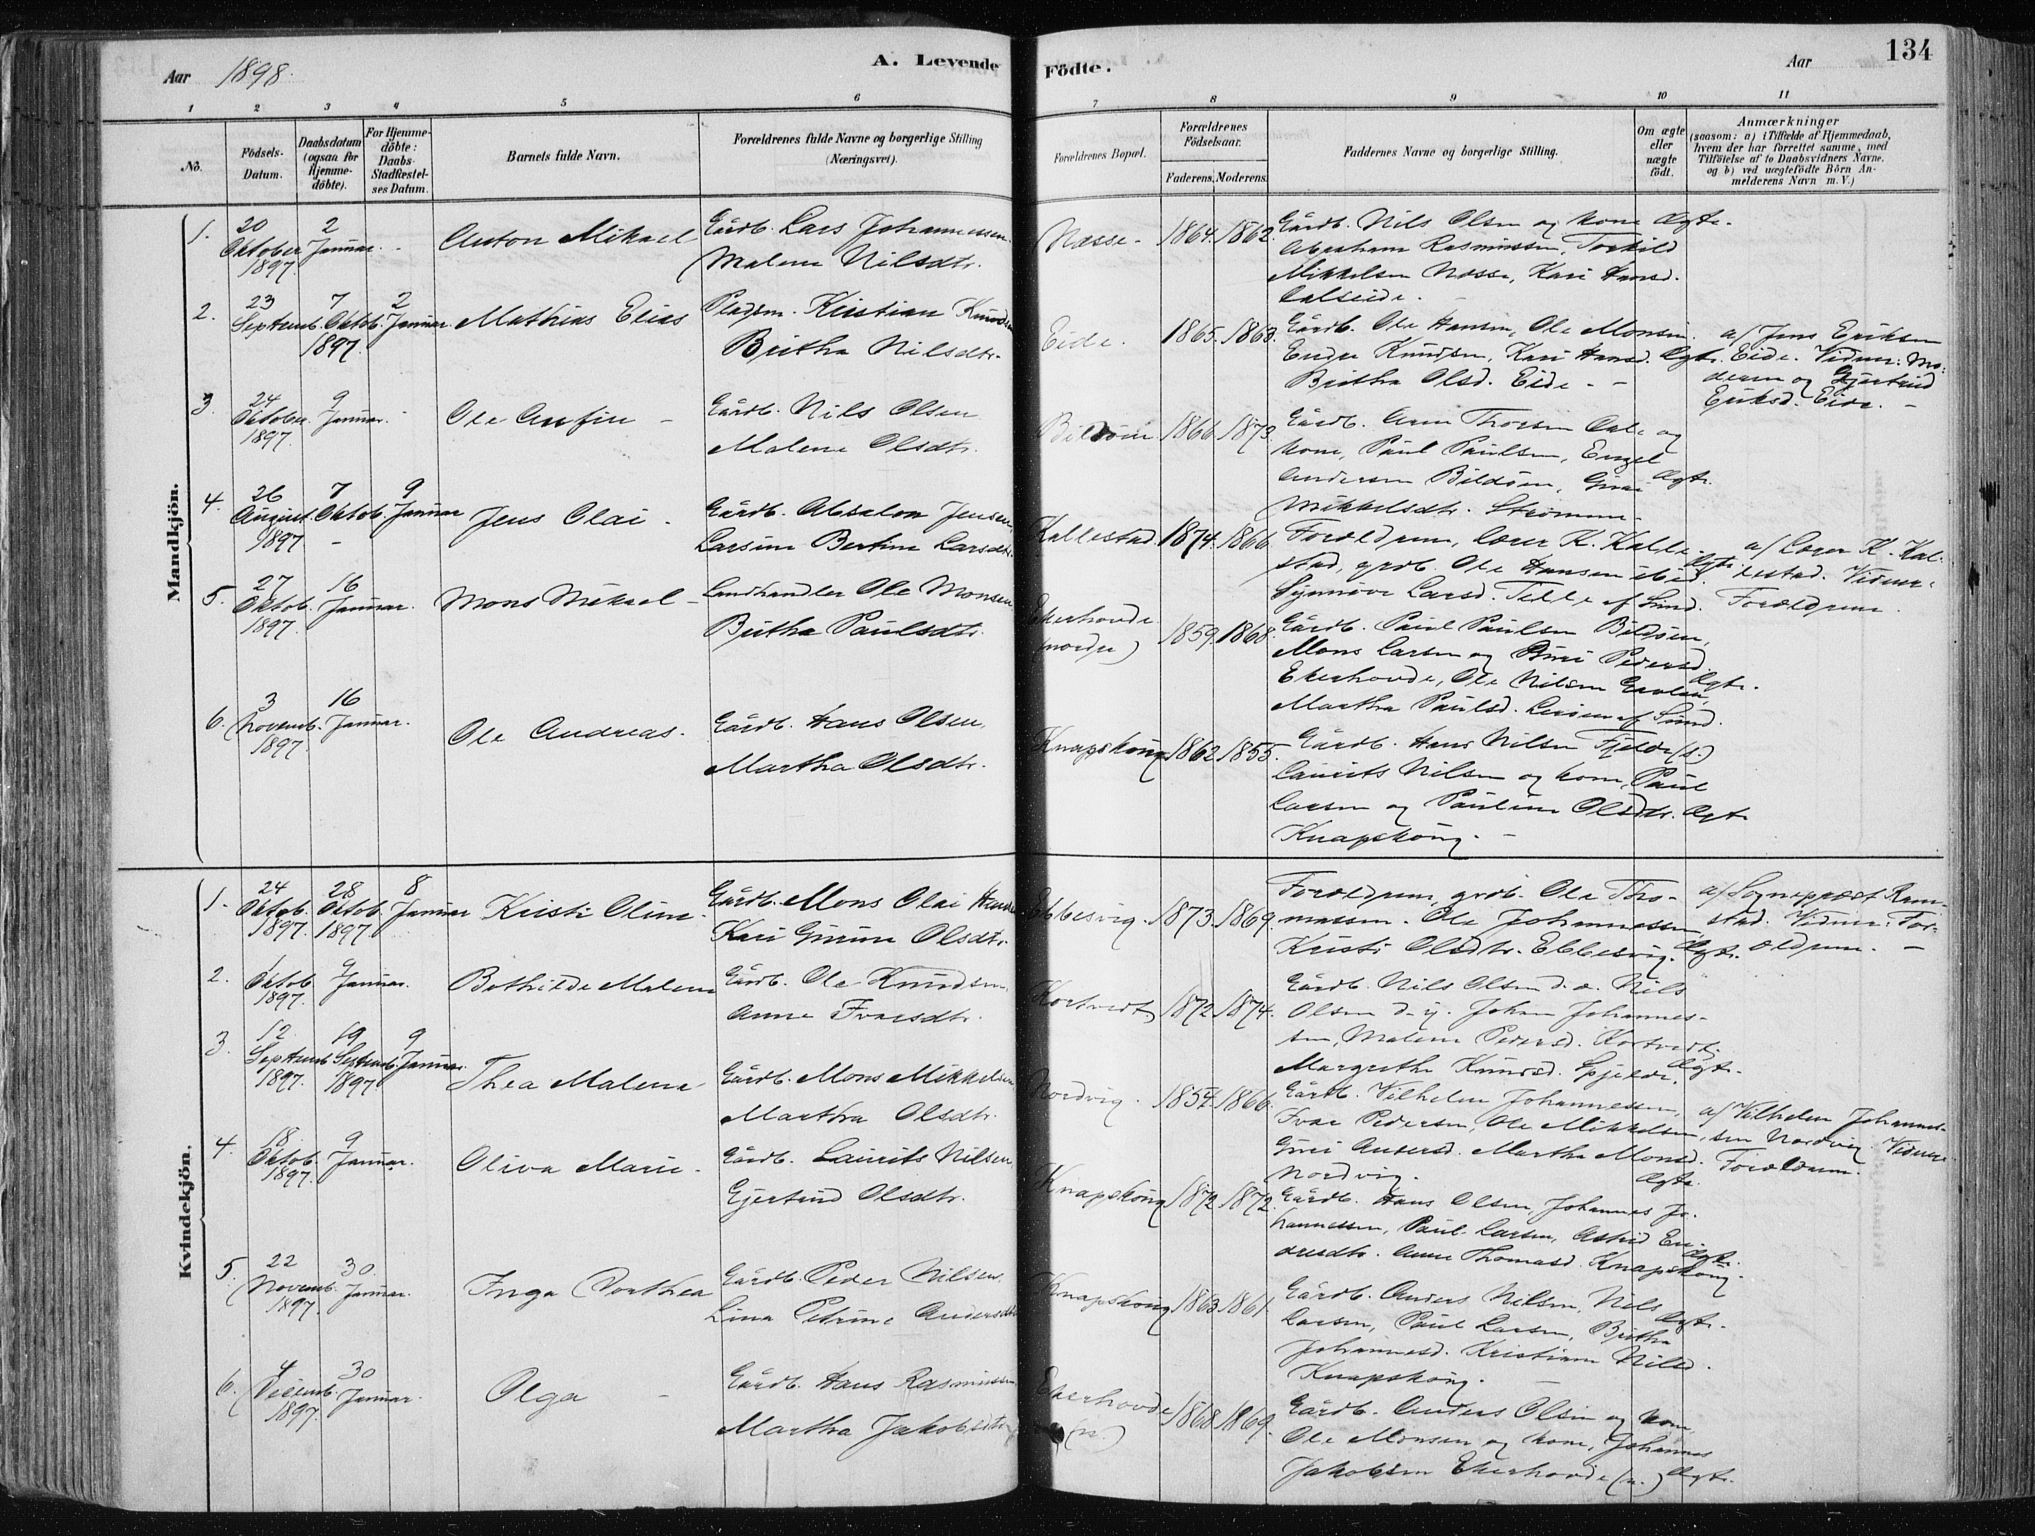 Aar 1898.
A. Levende Födte.
Aar
134
1 2 3 4 5 6 7 8 9 10 11
No.
Födsels-Datum.
Daabsdatum (ogsaa for Hjemme-døbte).
For Hjemme-døbte: Daabs-Stadfæstel-ses Datum.
Barnets fulde Navn.
Forældrenes fulde Navne og borgerlige Stilling (Næringsvei).
Forældrenes Bopæl.
Forældrenes Födselsaar.
Faderens. Moderens.
Faddernes Navne og borgerlige Stilling.
Om ægte eller uægte födt.
Anmærkninger
(saasom: a) i Tilfælde af Hjemmedaab, hvem der har forrettet samme, med Tilföielse af to Daabsvidners Navne, og b) ved uægtefödte Börn Anmelderens Navn m. V.)
Mandkjön.
1. 20 Oktober 1897 2 Januar. - Anton Mikael Gårdb. Lars Johannessen. Malene Nilsdtr. Næsse. 1864. 1862. Gårdb. Nils Olsen og kone Ægte.
Abraham Rasmussen, Torkild
Mikkelsen Næsse, Kari Hansd.
2. 23 Septemb. 7 Oktob. 1897. 2 Januar. Mathias Elias Pladsm. Kristian Knudsen Britha Nilsdtr. Eide. 1865. 1863. Gårdb. Ole Hansen, Ole Monsen
Endre Knudsen, Kari Hansd. Ægte.
Britha Olsd. Eide. -
a/ Jens Eriksen
Eide. Vidner: Mo-
deren og Gjertrud
Eriksd. Eide. -
3. 24 Oktober. 1897. 9 Januar. Ole Anfin - Gårdb. Nils Olsen Malene Olsdtr. Bildøen 1866. 1873. Gårdb. Arne Thorsen Cale og
kone, Paul Paulsen, Engel
Andersen Bildøen, Guri Ægte.
Mikkelsdtr. Strømme.
4. 26 August. 1897 7 Oktob. 9 Januar Jens Olai - Gårdb. Absalon Jensen, Larsine Bertine Larsdtr. Kallestad. 1874. 1866. Forældrene, Lærer K. Kalle-
stad, grdb. Ole Hansen ibid. Ægte.
Synnøve Larsd. Telle af Sund.
a/ Lærer K. Kal-
lestad. Vidner:
Forældrene.
5. 27 Oktob. 1897. 16 Januar. Mons Mikael - Landhandler Ole Monsen Britha Paulsdtr. Ekerhovde (nordre) 1859. 1868. Gårdb. Paul Paulsen Bildøen,
Mons Larsen og Guri Pedersd.
Ekerhovde, Ole Nilsen Ægte.
Martha Paulsd. Lerøen af Sund.
6. 3 Novemb. 1897. 16 Januar. Ole Andreas. Gårdb. Hans Olsen. Martha Olsdtr. Knapskoug 1862. 1855. Gårdb. Hans Nilsen Fjelde (s.)
Laurits Nilsen og kone, Paul
Larsen og Pauline Olsdtr. Ægte
Knapskoug. -
Kvindekjön.
1. 24 Oktob. 1897. 28 Oktob. 1897 8 Januar Kristi Oline. Gårdb. Mons Olai Hansen Kari Gurine Olsdtr. Ebbesvig. 1873. 1869. Forældrene, grdb. Ole Tho-
massen. Ole Johannessen,
Kristi Olsdtr. Ebbesvig. Ægte.
a/ Sognepræst Ram-
stad. Vidner: For-
ældrene. -
2. 1 Oktob. 1897. 9 Januar. Bothilde Malene Gårdb. Ole Knudsen. Anne Ivarsdtr. Kortvedt 1872. 1874. Gårdb. Nils Olsen d. æ. Nils
Olsen d. y. Johan Johannes-
sen, Malene Pedersd. Kortvedt,
Margrethe Knudsd. Spjelde. Ægte.
3. 12 Septemb 1897. 19 Septemb. 1897. 9 Januar. Thea Malene Gårdb. Mons Mikkelsen Martha Olsdtr. Nordvig. 1854. 1866. Gårdb. Vilhelm Johannessen,
Ivar Pedersen, Ole Mikkelsen,
Guri Andersd. Martha Monsd.
Nordvig. Ægte.
a/ Vilhelm Johannes-
sen Nordvig. Vidner:
Forældrene.
4. 18 Oktob. 1897. 9 Januar. Oliva Marie. Gårdb. Laurits Nilsen Gjertrud Olsdtr. Knapskoug 1872. 1872. Gårdb. Hans Olsen, Johannes Jo-
hannessen, Paul Larsen, Astrid En-
dresdtr. Anne Thomasd. Knapskoug. Ægte.
5. 22 Novemb. 1897. 30. Januar. Inga Dorthea Gårdb. Peder Nilsen. Lina Petrine Andersdtr. Knapskoug 1863. 1861. Gårdb. Anders Nilsen, Nils
Larsen, Paul Larsen, Britha Ægte.
Johannesd. Kristiane Nilsd.
Knapskoug. -
6. 4 Decemb. 1897. 30 Januar. Olga - Gårdb. Hans Rasmussen Martha Jakobsdtr. Ekerhovde (n.) 1868. 1869. Gårdb. Anders Olsen og kone
Ole Monsen og kone, Johannes
Jakobsen Ekerhovde (n.) Ægte.